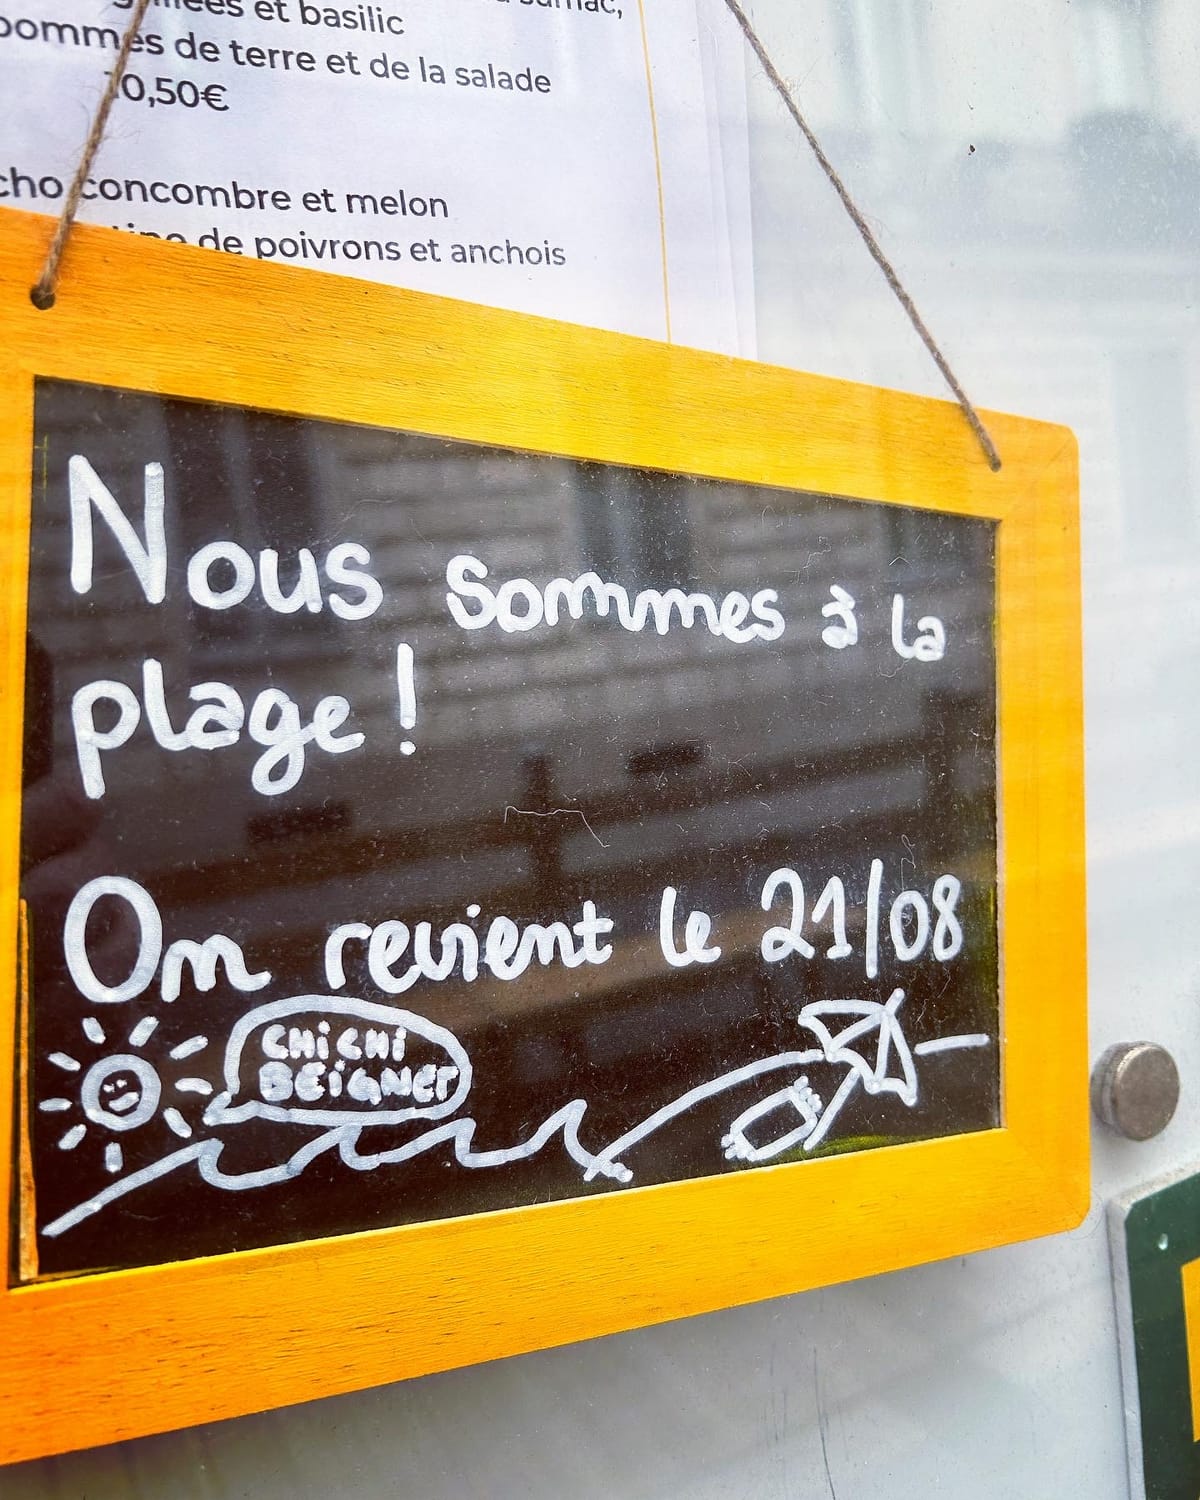 et basilic
pommes de terre et de la salade
10,50€
concombre et melon
de poivrons et anchois
Nous sommes à la
plage !
On revient le 21/08
CHiCHi
BEiGNET